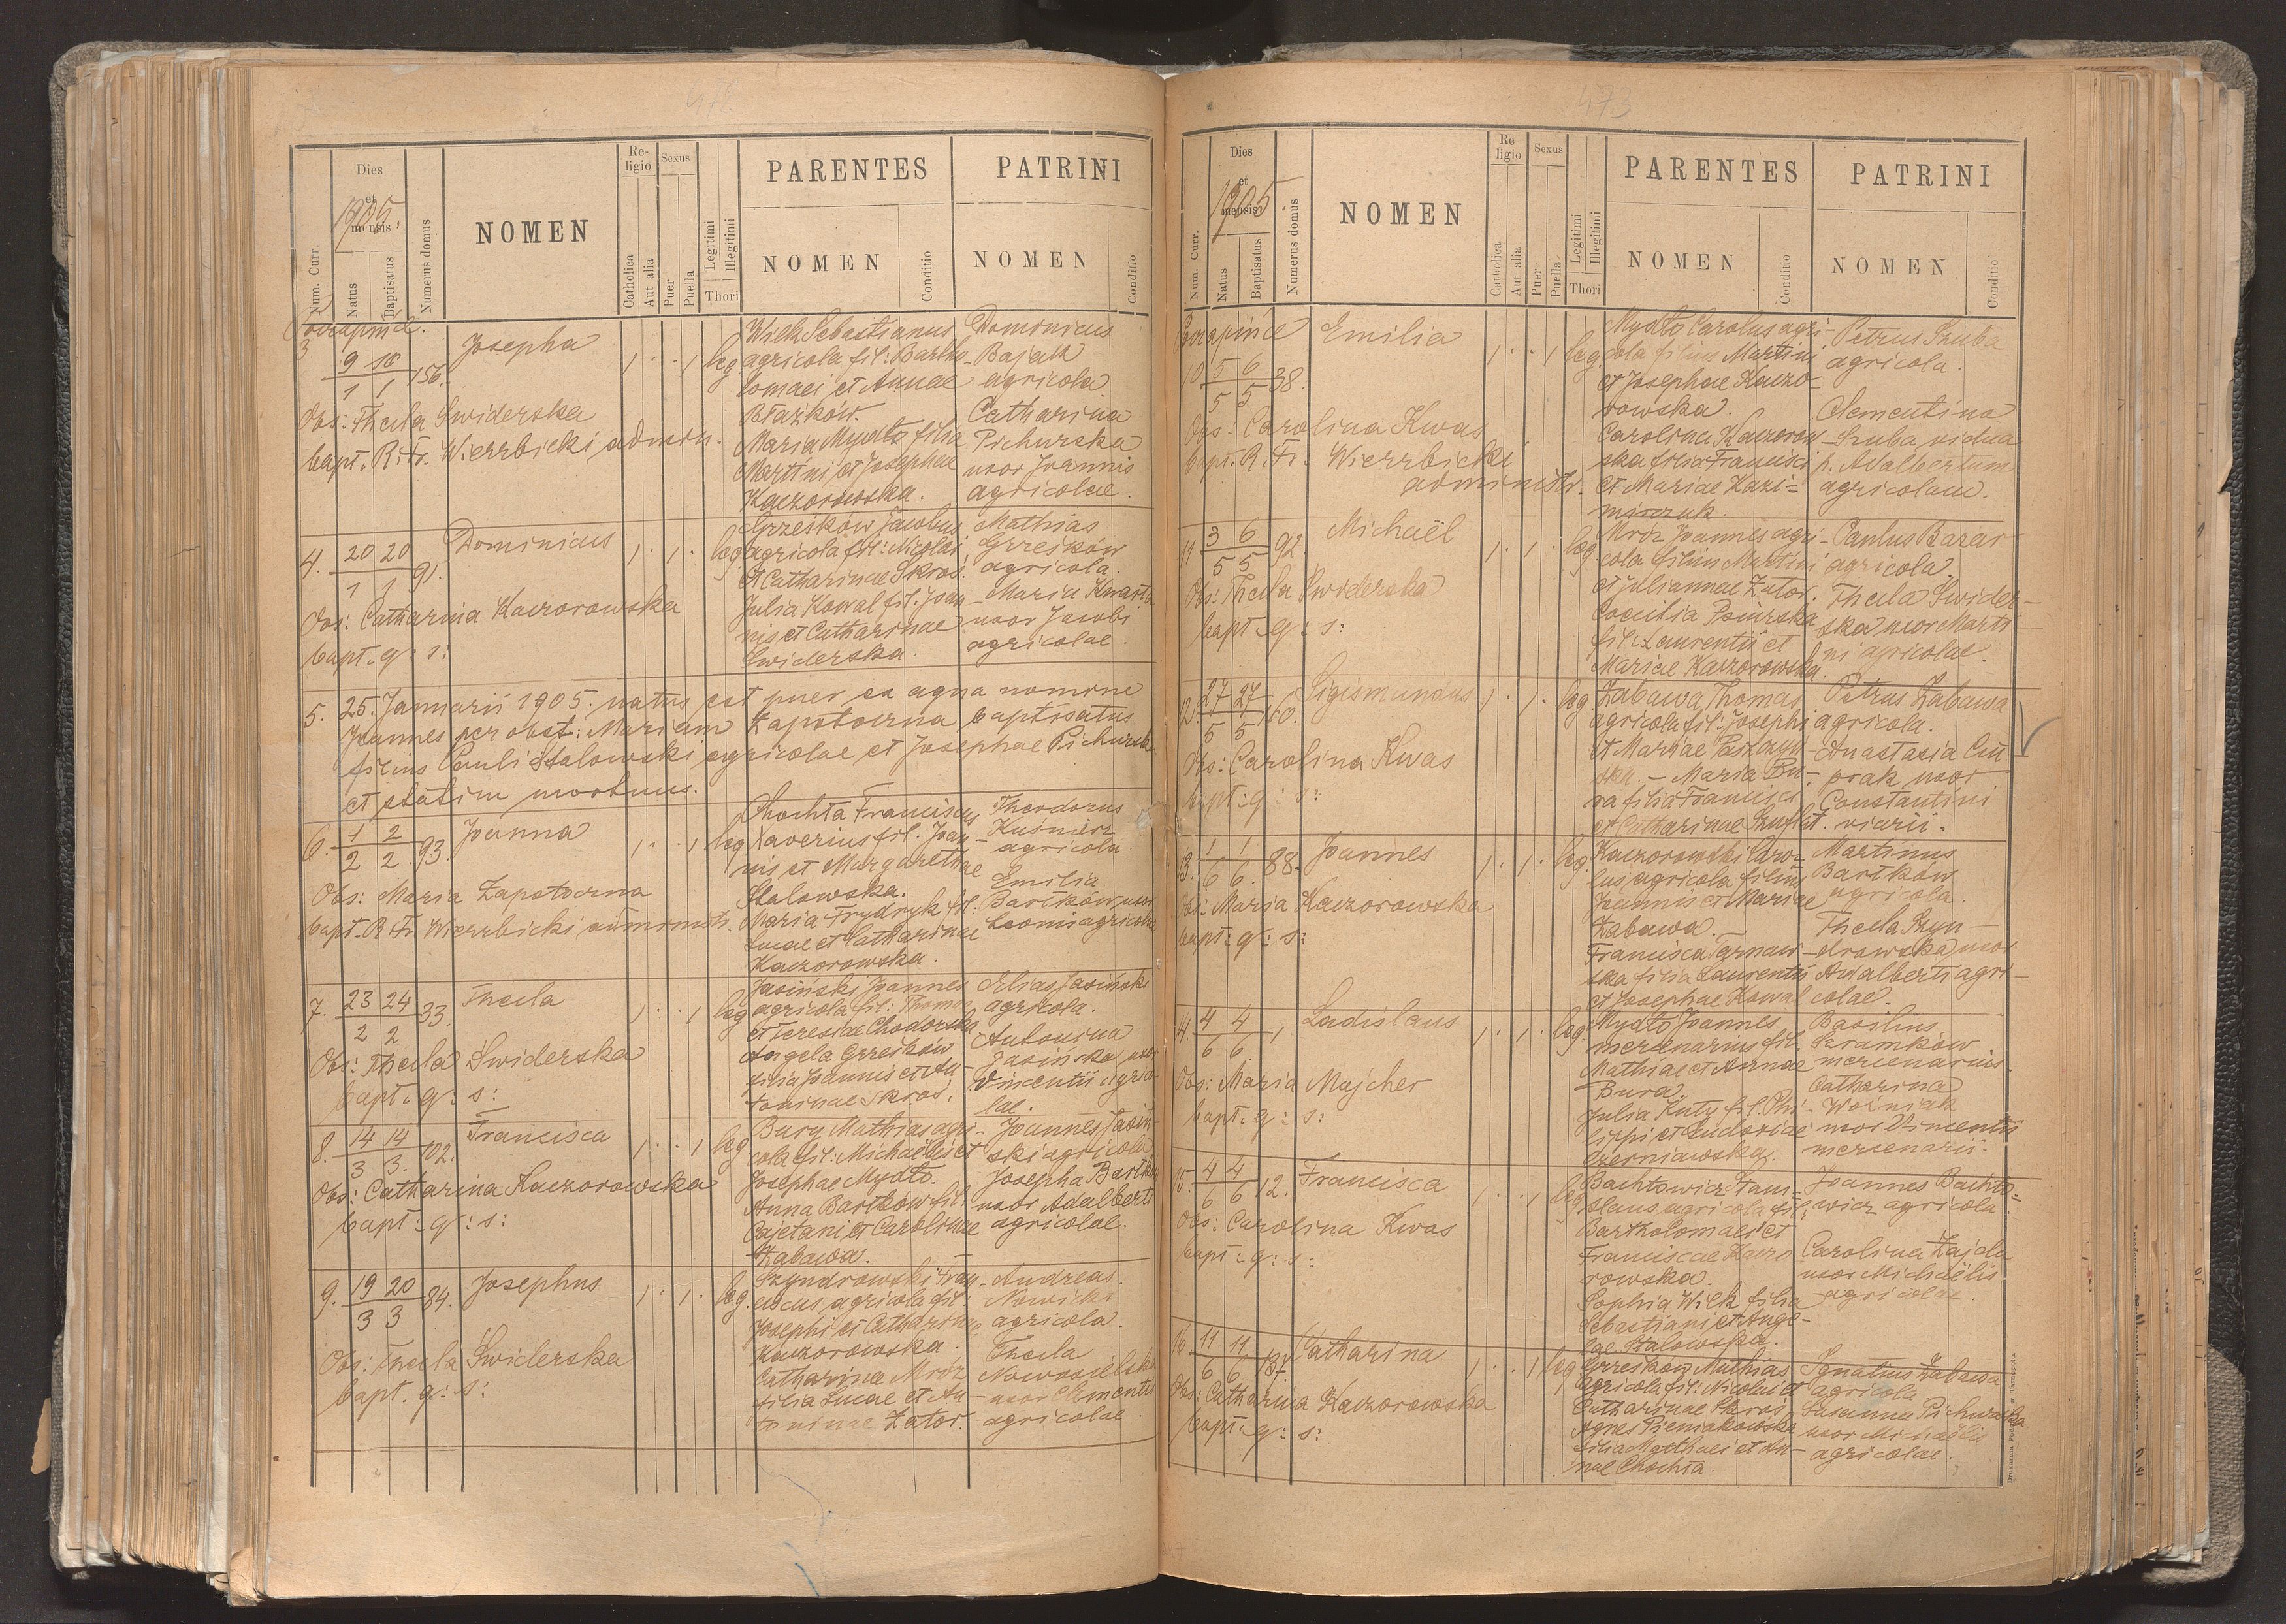 472
Dies
et
mensis
1905.
Num. Curr.
Natus
Baptisatus
Numerus domus
NOMEN
Re-
ligio
Catholica
Aut alia
Sexus
Puer
Puella
Legitimi
Illegitimi
Thori
PARENTES
NOMEN
Conditio
PATRINI
NOMEN
Conditio
3
9 10
1 1
156.
Josepha
1 . . 1 leg
Obs: Thecla Swiderska
bapt. R. Fr. Wierzbicki admin.
Wilk Sebastianus
agricola fil: Bartho-
lomaei et Annae
Błażków.
Maria Mydło filia
Martini et Josephae
Kaczorowska.
Dominicus
Bajak
agricola
Catharina
Pichurska
uxor Joannis
agricolae.
4. 20 20
1 1
91.
Dominicus
1 . 1 . leg
Obs: Catharina Kaczorowska
bapt. q: s:
Grzeików Jacobus
agricola fil: Nicolai
et Catharinae Skros.
Julia Kowal fil: Joan-
nis et Catharinae
Swiderska.
Mathias
Grzeików
agricola.
Maria Kwasta
uxor Jacobi
agricolae.
5. 25. Januarii 1905. natus est puer ex aqua nomine
Joannes per obst: Mariam Zapotoczna baptisatus
filius Pauli Stalowski agricolae et Josephae Pichurska
et statim mortuus.
6. 1 2
2 2
93.
Joanna
1 . . 1 leg
Obs: Maria Zapotoczna
bapt. R. Fr. Wierzbicki administr.
Chochta Franciscus
Xaverius fil. Joan-
nis et Margarethae
Stalowska.
Maria Frydryk fil:
Lucae et Catharinae
Kaczorowska.
Theodorus
Kuśnierz
agricola.
Emilia
Bartków uxor
Leonis agricolae
7. 23 24
2 2
33.
Thecla
1 . . 1 leg
Obs: Thecla Swiderska
bapt. q: s:
Jasiński Joannes
agricola fil: Thomae
et Teresiae Chodorska
Angela Grzeików
filia Joannis et An-
toninae Skros.
Elias Jasiński
agricola.
Antonina
Jasińska uxor
Vincentii agrico-
lae.
8. 14 14
3 3.
102.
Francisca
1 . . 1 leg
Obs: Catharina Kaczorowska
bapt: q: s:
Bury Mathias agri-
cola fil: Michaëlis et
Josephae Mydło.
Anna Bartków fil
Cajetani et Carolinae
Zabawa.
Joannes Jasiń-
ski agricola
Josepha Bartków
uxor Adalberti
agricolae.
9. 19 20
3 3
84.
Josephus
1 . 1 . leg.
Obs: Thecla Swiderska
bapt. q: s:
Szyndrowski Fran-
ciscus agricola fil:
Josephi et Catharinae
Kaczorowska.
Catharina Mróz
filia Lucae et An-
toninae Zator.
Andreas
Nowicki
agricola.
Thecla
Nowosielska
uxor Clementis
agricolae.
473
Dies
et
mensis
1905.
Num. Curr.
Natus
Baptisatus
Numerus domus
NOMEN
Re
ligio
Catholica
Aut alia
Sexus
Puer
Puella
Legitimi
Illegitimi
Thori
PARENTES
NOMEN
Conditio
PATRINI
NOMEN
Conditio
10. 5 6
5 5
38.
Emilia
1 . . 1 leg.
Obs: Carolina Kwas
bapt. R. Fr. Wierzbicki
administr.
Mydło Carolus agri-
cola filius Martini
et Josephae Kaczo-
rowska.
Carolina Kaczorow-
ska filia Francisci
et Mariae Kazi-
mirczuk.
Petrus Szuba
agricola.
Clementina
Szuba vidua
p. Adalbertum
agricolam.
11 3 6
5 5
92.
Michaël
1 . 1 . leg.
Obs: Thecla Swiderska
bapt. q: s:
Mróz Joannes agri-
cola filius Martini
et Juliannae Zator.
Coecilia Psiurska
fil: Laurentii et
Mariae Kaczorowska.
Paulus Bazar
agricola
Thecla Swider-
ska uxor Marti-
ni agricolae.
12. 27 27
5 5
110.
Sigismundus
1 . 1 . leg.
Obs: Carolina Kwas
bapt: q: s:
Zabawa Thomas
agricola fil: Josephi
et Mariae Paszczyń-
ska. - Maria Bu-
ra filia Francisci
et Catharinae Szuflit.
Petrus Zabawa
agricola.
Anastasia Ciu-
prak uxor
Constantini
viarii.
13. 1 1
6 6.
88.
Joannes
1 . 1 . leg.
Obs: Maria Kaczorowska
bapt: q: s:
Kaczorowski Caro-
lus agricola filius
Joannis et Mariae
Zabawa.
Francisca Tarnaw-
ska filia Laurentii
et Josephae Kowal
Martinus
Bartków
agricola.
Thecla Szyn-
drowska uxor
Adalberti agri-
colae.
14. 4 4
6 6.
1
Ladislaus
1 . 1 . leg.
Obs: Maria Majcher
bapt. q: s:
Mydło Joannes
mercenarius fil.
Mathiae et Annae
Bura.
Julia Kuty fil. Phi-
lippi et Eudoxiae
Czerniawska.
Basilius
Szramków
mercenarius.
Catharina
Woźniak
uxor Vincentii
mercenarii.
15. 4 4
6 6
12.
Francisca
1 . . 1 leg.
Obs: Carolina Kwas
bapt: q: s:
Bachtowicz Stani-
slaus agricola fil:
Bartholomaei et
Franciscae Kaczo
rowska.
Sophia Wilk filia
Sebastiani et Ange-
lae Stalowska.
Joannes Bachto-
wicz agricola.
Carolina Zajda
uxor Michaëlis
agricolae.
16. 11 11
6 6
137.
Catharina
1 . . 1 leg
Obs: Catharina Kaczorowska
bapt. q: s:
Grzeików Mathias
agricola fil: Nicolai et
Catharinae Skros
Agnes Pieniakowska
filia Matthaei et An-
nae Chochta.
Ignatius Zabawa
agricola
Susanna Pichurska
uxor Michaëlis
agricolae.